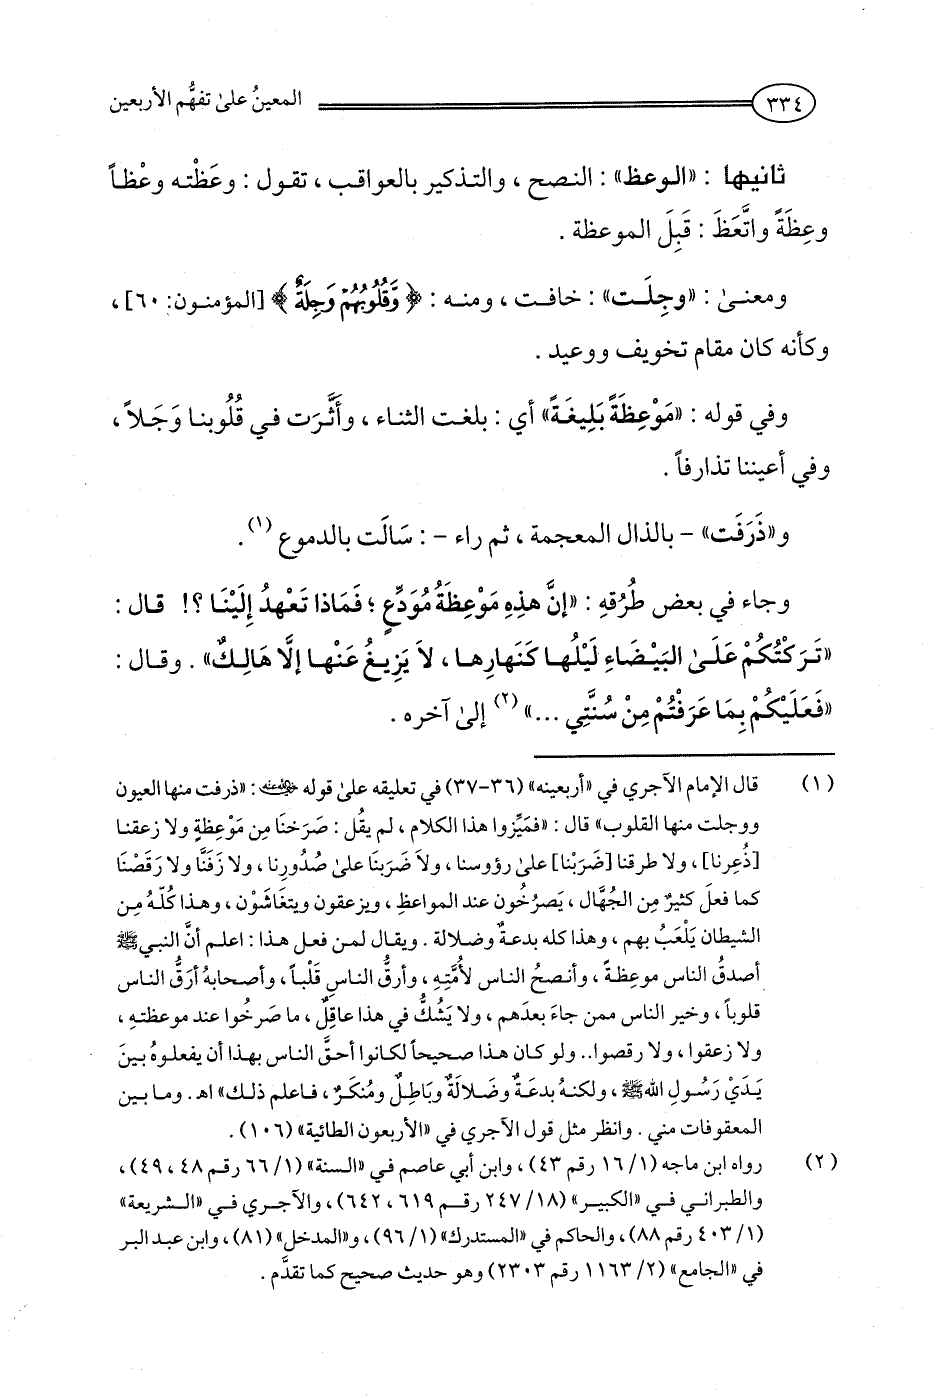 ٣٣٤ المعينُ على تفهُّم الأربعين
ثانيها : «الوعظ» : النصح ، والتذكير بالعواقب ، تقول : وعَظْته وعْظاً
وعِظَةً واتَّعَظَ : قَبِلَ الموعظة .
ومعنى : «وجِلَت» : خافت ، ومنه : ﴿ وَّقُلُوبُهُمْ وَجِلَةٌ ﴾ [المؤمنون: ٦٠] ،
وكأنه كان مقام تخويف ووعيد .
وفي قوله : «مَوْعِظَةً بَلِيغَةً» أي : بلغت الثناء ، وأَثَّرَت في قُلُوبنا وَجَلاً ،
وفي أعيننا تذارفاً .
و«ذَرَفَت» – بالذال المعجمة ، ثم راء – : سَالَت بالدموع (١).
وجاء في بعض طُرُقهِ : «إنَّ هذِهِ مَوْعِظَةُ مُوَدِّعٍ ؛ فَمَاذا تَعْهدُ إلَيْنَا ؟! قال :
«تَرَكْتُكُمْ عَلَى البَيْضَاءِ لَيْلُها كَنَهارِها ، لاَ يَزِيغُ عَنْها إلَّا هَالِكٌ» . وقال :
«فَعَلَيْكُمْ بِمَا عَرَفْتُمْ مِنْ سُنَّتِي ...» (٢) إلى آخره .
(١) قال الإمام الآجري في «أربعينه» (٣٦-٣٧) في تعليقه على قوله ﷺ : «ذرفت منها العيون
ووجلت منها القلوب» قال : «فمَيِّزوا هذا الكلام ، لم يقُل : صَرَخنا مِن مَوْعِظةٍ ولا زعقنا
[ذُعِرنا] ، ولا طرقنا [ضَرَبْنا] على رؤوسنا ، ولاَ ضَرَبنَا على صُدُورِنا ، ولا زَفَنَّا ولا رَقَصْنَا
كما فعلَ كثيرٌ مِن الجُهَّال ، يَصرُخُون عند المواعظِ ، ويزعقون ويتغَاشَوْن ، وهذا كُلّهُ مِن
الشيطان يَلْعَبُ بهم ، وهذا كله بدعةٌ وضلالة . ويقال لمن فعل هذا : اعلم أنَّ النبي ﷺ
أصدقُ الناس موعِظةً ، وأنصحُ الناس لأُمَّتِهِ ، وأرقُّ الناسِ قَلْباً ، وأصحابهُ أرَقُّ الناس
قلوباً ، وخير الناس ممن جاءَ بعدَهم ، ولا يَشُكُّ في هذا عاقِلٌ ، ما صَرخُوا عند موعظتهِ ،
ولا زعقوا ، ولا رقصوا.. ولو كان هذا صحيحاً لكانوا أحقَّ الناس بهذا أن يفعلوهُ بينَ
يَدَيْ رَسُولِ اللهِ ﷺ ، ولكنهُ بدعَةٌ وضَلالَةٌ وبَاطِلٌ ومُنكَرٌ ، فاعلم ذلك» اهـ . وما بين
المعقوفات مني . وانظر مثل قول الآجري في «الأربعون الطائية» (١٠٦) .
(٢) رواه ابن ماجه (١/ ١٦ رقم ٤٣) ، وابن أبي عاصم في «السنة» (١/ ٦٦ رقم ٤٨ ، ٤٩) ،
والطبراني في «الكبير» (١٨/ ٢٤٧ رقم ٦١٩ ، ٦٤٢) ، والآجري في «الشريعة»
(١/ ٤٠٣ رقم ٨٨) ، والحاكم في «المستدرك» (١/ ٩٦) ، و«المدخل» (٨١) ، وابن عبد البر
في «الجامع» (٢/ ١١٦٣ رقم ٢٣٠٣) وهو حديث صحيح كما تقدَّم .